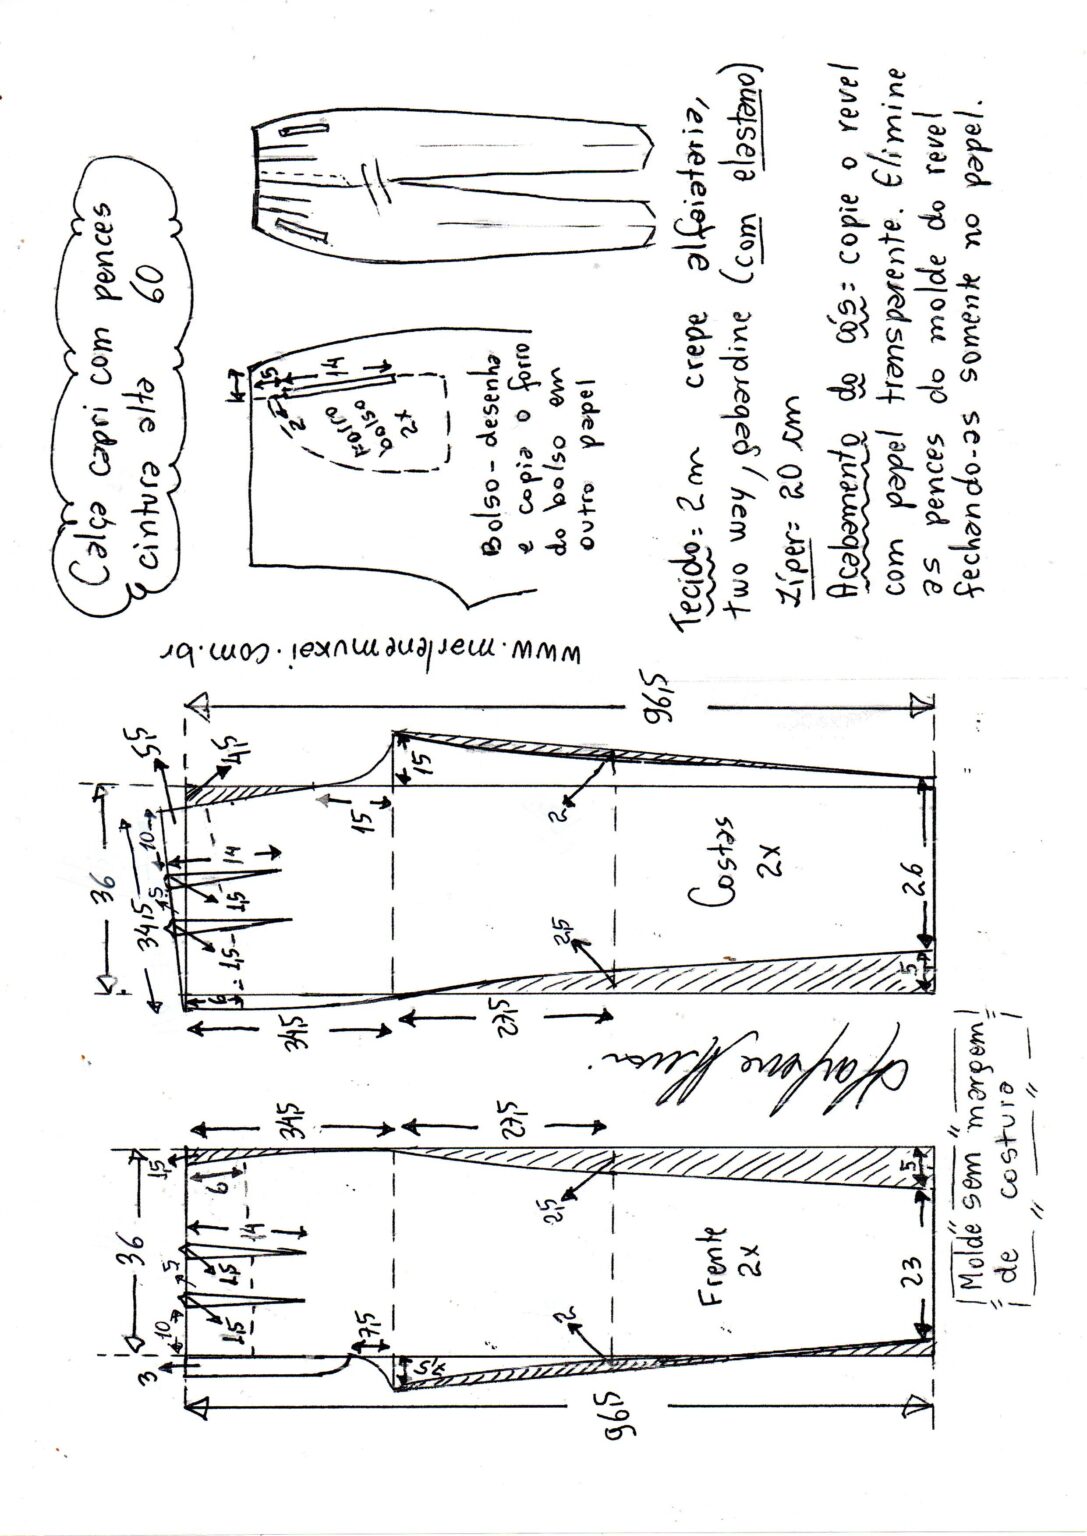 Calça capri com pences
e cintura alta 60
5
14
2
Forro
bolso
2x
Bolso - desenha
e copia o forro
do bolso em
outro papel
Tecido = 2 m crepe alfaiataria,
two way, gabardine (com elastano)
Zíper = 20 cm
Acabamento do cós = copie o revel
com papel transparente. Elimine
as pences do molde do revel
fechando-as somente no papel.
www.marlenemukai.com.br
96,5
5,5
4,5
36
34,5
10
5
14
1,5
1,5
6
15
15
2
2,5
Costas
2x
26
5
34,5
27,5
34,5
27,5
1,5
6
36
14
5
10
1,5
1,5
3
7,5
2,5
2
Frente
2x
23
5
96,5
Molde sem margem
de costura